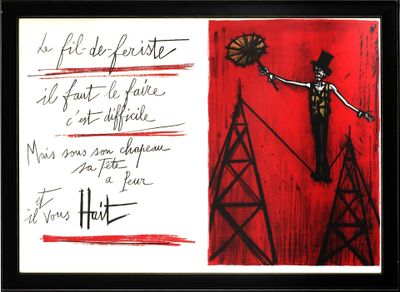 Le fil-de-feriste
il faut le faire
c'est difficile
Mais sous son chapeau
sa Tête
a Peur
et
il vous Hait